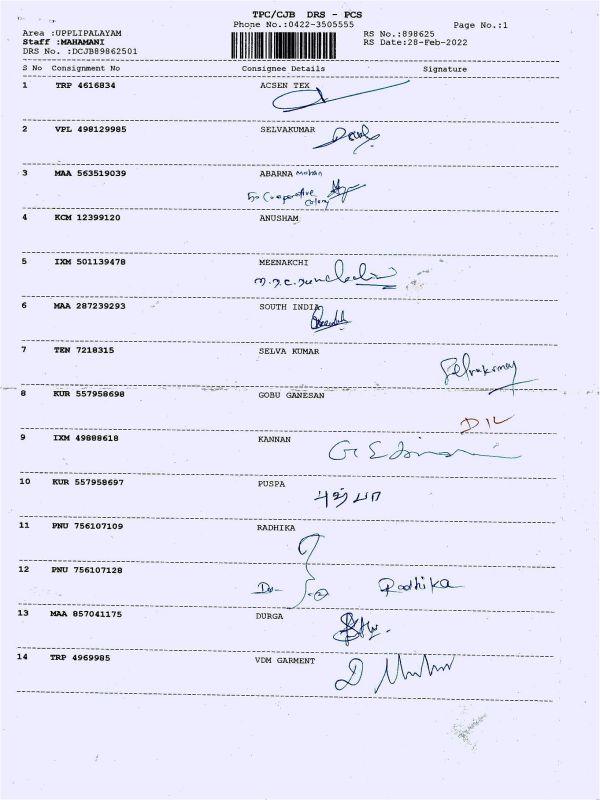 TPC/CJB DRS - PCS
Phone No.:0422-3505555 Page No.:1
Area :UPPLIPALAYAM RS No.:898625
Staff :MAHAMANI RS Date:28-Feb-2022
DRS No. :DCJB89862501
S No Consignment No Consignee Details Signature
1 TRP 4616834 ACSEN TEX
2 VPL 498129985 SELVAKUMAR
3 MAA 563519039 ABARNA Mohan
50 Cooperative
Colony
4 KCM 12399120 ANUSHAM
5 IXM 501139478 MEENAKCHI
6 MAA 287239293 SOUTH INDIA
7 TEN 7218315 SELVA KUMAR
Selvakumar
8 KUR 557958698 GOBU GANESAN
DIL
9 IXM 49888618 KANNAN
10 KUR 557958697 PUSPA
புஷ்பா
11 PNU 756107109 RADHIKA
12 PNU 756107128
Radhika
13 MAA 857041175 DURGA
14 TRP 4969985 VDM GARMENT